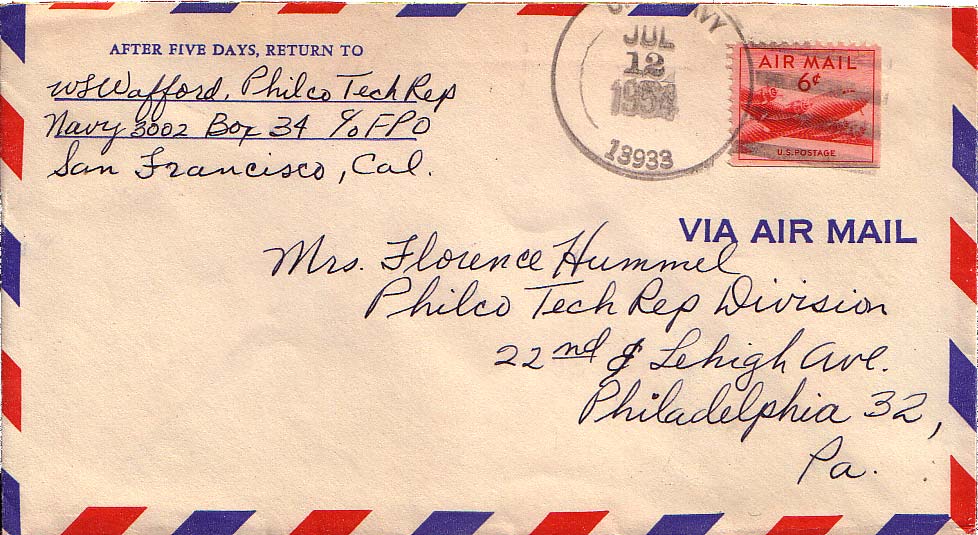 AFTER FIVE DAYS, RETURN TO
WSWafford, Philco Tech Rep
Navy 3002 Box 34 c/o FPO
San Francisco, Cal.
NAVY
JUL
12
1954
13933
AIR MAIL
6¢
U.S. POSTAGE
VIA AIR MAIL
Mrs. Florence Hummel
Philco Tech Rep Division
22nd & Lehigh Ave.
Philadelphia 32,
Pa.